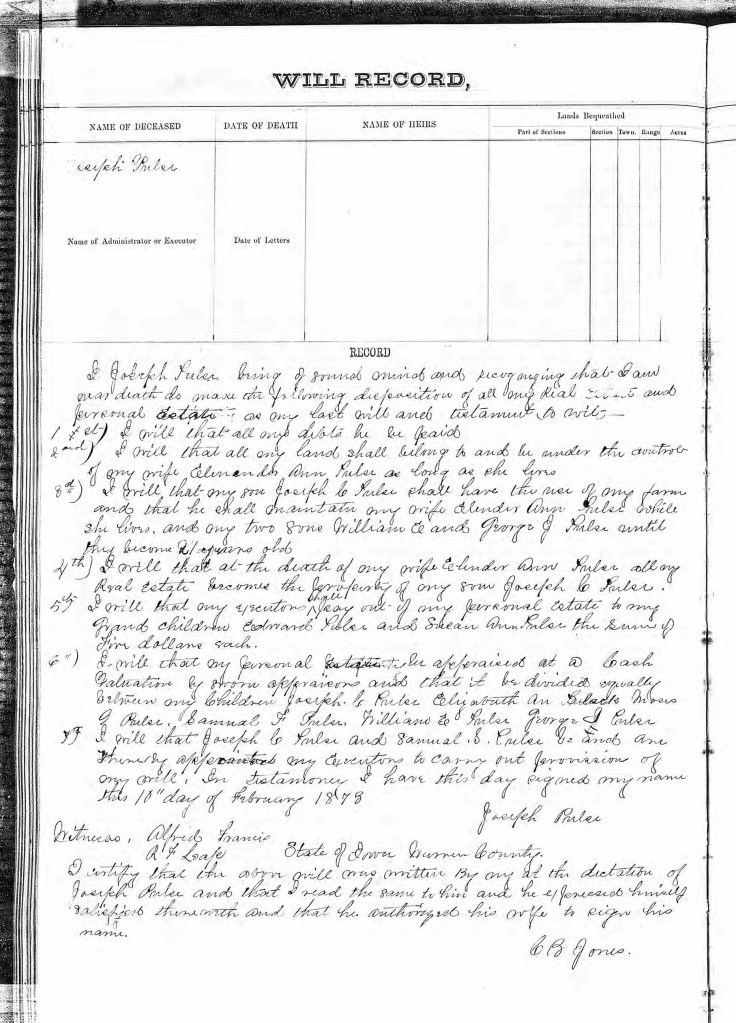 WILL RECORD,
NAME OF DECEASED
DATE OF DEATH
NAME OF HEIRS
Lands Bequeathed
Part of Sections
Section
Town.
Range
Acres
Joseph Pulse
Name of Administrator or Executor
Date of Letters
RECORD
I Joseph Pulse being of sound mind and recognizing that I am
near death do make the following disposition of all my Real and
personal Estate as my last will and testament to wit:—
1st) I will that all my debts be paid
2nd) I will that all my land shall belong to and be under the controle
of my wife Elender Ann Pulse as long as she lives
3d) I will that my son Joseph C Pulse shall have the use of my farm
and that he shall maintain my wife Elender Ann Pulse while
she lives. and my two sons William E and George J Pulse until
they become 21 years old
4th) I will that at the death of my wife Elender Ann Pulse all my
Real Estate becomes the property of my son Joseph C Pulse.
5th I will that my executors shall pay out of my personal Estate to my
Grand children Edward Pulse and Susan Ann Pulse the sum of
Five dollars each.
6") I will that my personal be appraised at a Cash
Valuation by sworn appraisors and that it be divided equally
between my Children Joseph C Pulse Elizabeth An Moses
G Pulse. Samual F Pulse. William E Pulse George J Pulse
I will that Joseph C Pulse and Samual Pulse be and are
hereby my Executors to carry out provission of
my will. In Testamoney I have this day signed my name
this 10" day of February 1873
Joseph Pulse
Witness. Alfrid Francis
State of Iowa Warren County.
I certify that the above will was written By my at the dictation of
Joseph Pulse and that I read the same to him and he expressed himself
satisfied therewith and that he authorized his wife to sign his
name.
C B Jones.